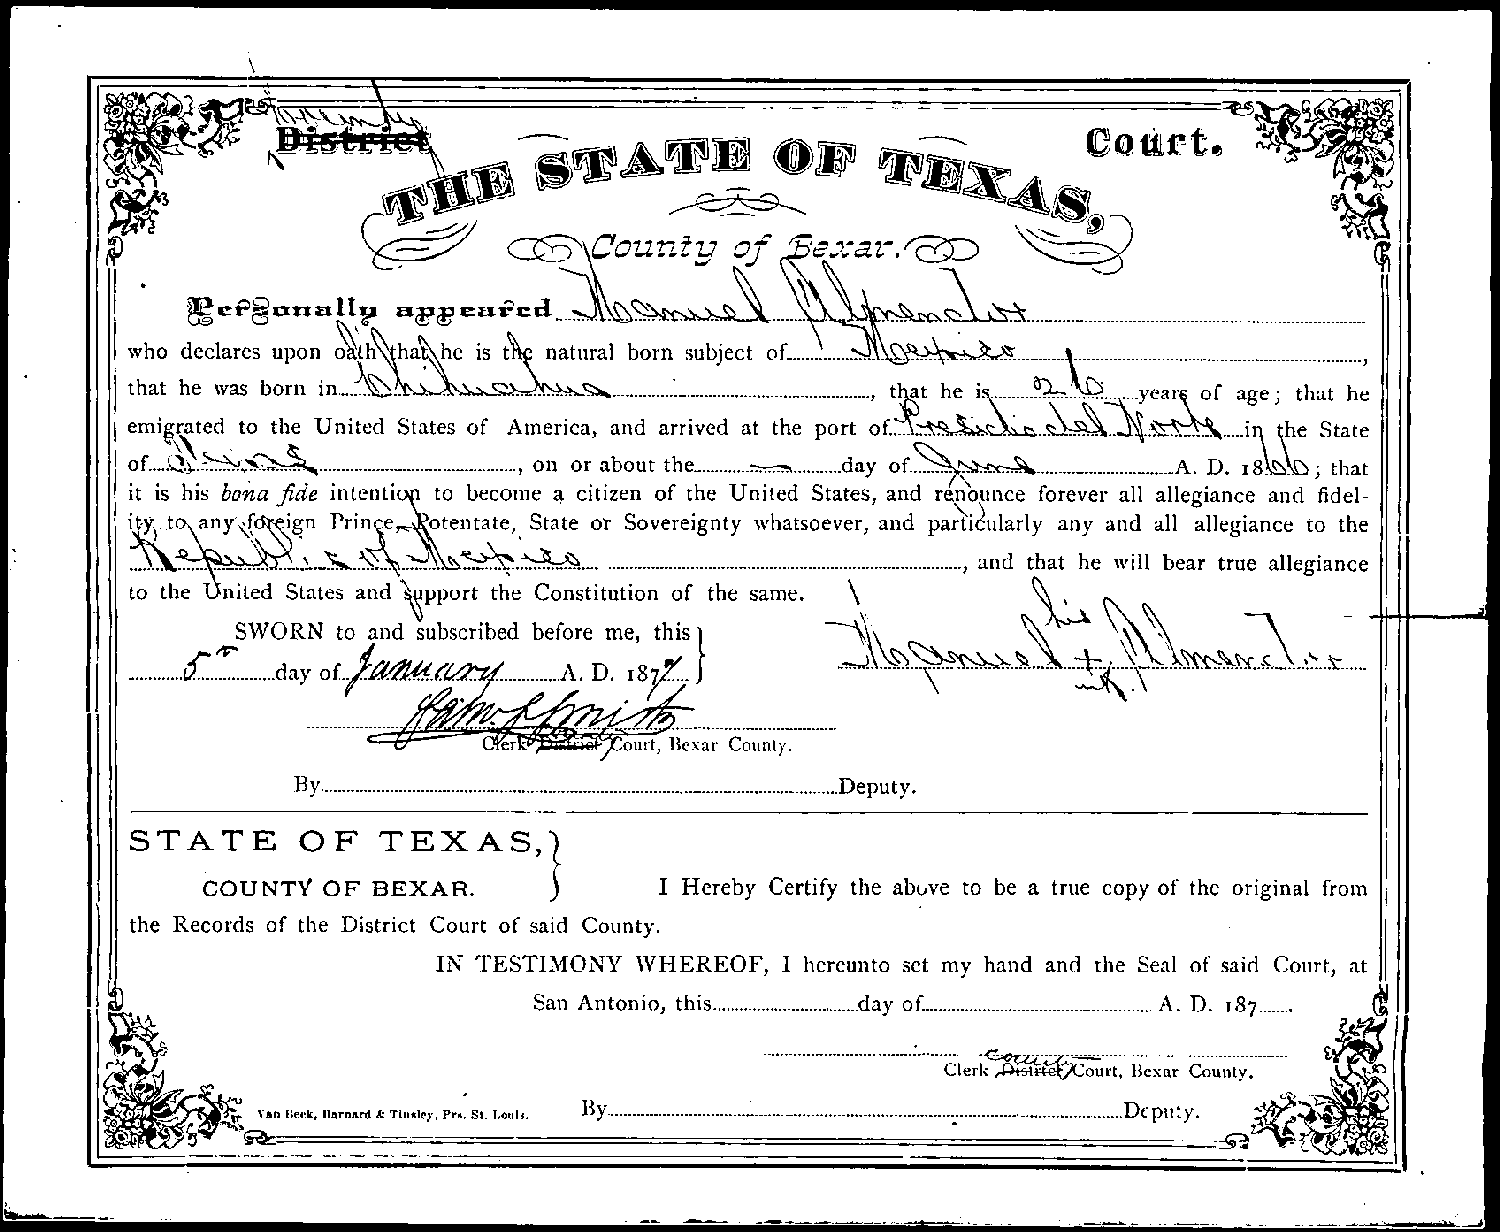 County
District Court.
THE STATE OF TEXAS,
County of Bexar.
Personally appeared Manuel Almendor
who declares upon oath that he is the natural born subject of Mexico,
that he was born in Chihuahua, that he is 26 years of age; that he
emigrated to the United States of America, and arrived at the port of Presidio del Norte in the State
of Texas, on or about the — day of June A. D. 1866; that
it is his bona fide intention to become a citizen of the United States, and renounce forever all allegiance and fidel-
ity to any foreign Prince, Potentate, State or Sovereignty whatsoever, and particularly any and all allegiance to the
Republic of Mexico, and that he will bear true allegiance
to the United States and support the Constitution of the same.
his
SWORN to and subscribed before me, this
Manuel + Almendor
mk.
5th day of January A. D. 1877
Sam. S. Smith
Clerk District Court, Bexar County.
By Deputy.
STATE OF TEXAS,
COUNTY OF BEXAR. I Hereby Certify the above to be a true copy of the original from
the Records of the District Court of said County.
IN TESTIMONY WHEREOF, I hereunto set my hand and the Seal of said Court, at
San Antonio, this day of A. D. 187 .
County
Clerk District Court, Bexar County.
Van Beek, Barnard & Tinsley, Prs. St. Louis. By Deputy.